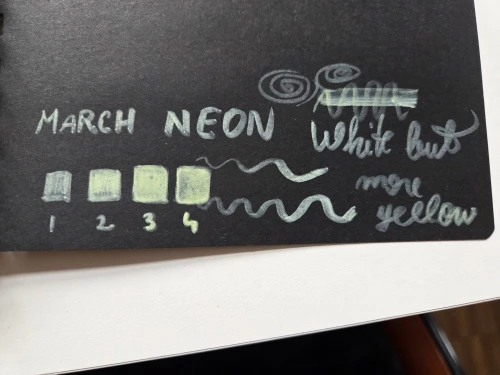 MARCH NEON
White but
more
yellow
1 2 3 4